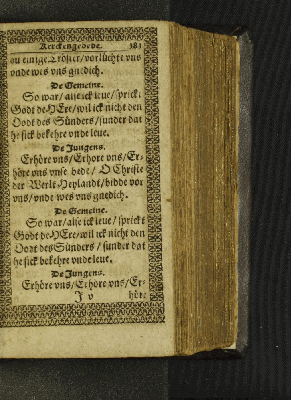 Kerckengebede. 381
vn einige Tröster / vorlüchte vns
vnde wes vns gnedich.
De Gemeine.
So war / alse ick leue / sprickt
Godt de HEre / wil ick nicht den
Dodt des Sünders / sunder dat
he sick bekehre vnde leue.
De Jungens.
Erhöre vns / Erhore vns / Er-
höre vns vnse bede / O Christe
der Werlt Heylandt / bidde vor
vns / vnde wes vns gnedich.
De Gemeine.
So war / alse ick leue / sprickt
Godt de HEre / wil ick nicht den
Dodt des Sünders / sunder dat
he sick bekehre vnde leue.
De Jungens.
Erhöre vns / Erhore vns / Er-
J v höre